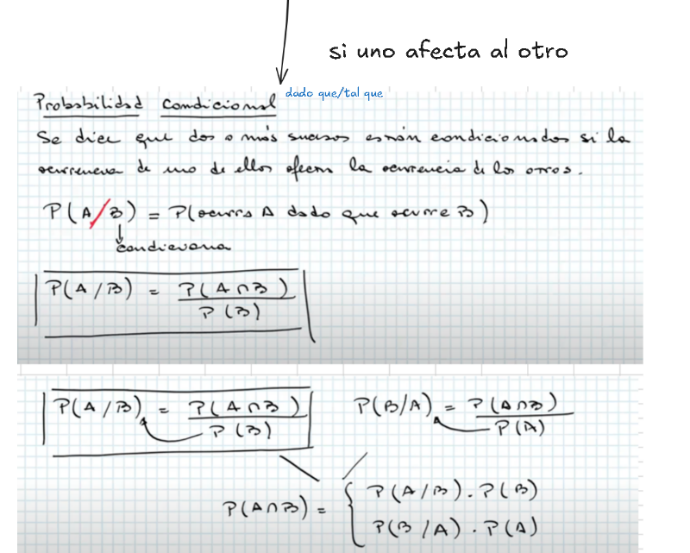 si uno afecta al otro
dado que/tal que
Probabilidad Condicional
Se dice que dos o más sucesos están condicionados si la
ocurrencia de uno de ellos afecta la ocurrencia de los otros.
P(A/B) = P(ocurra A dado que ocurre B)
condiciona
P(A/B) = P(A∩B)
P(B)
P(A/B) = P(A∩B)
P(B)
P(B/A) = P(A∩B)
P(A)
P(A∩B) = { P(A/B) . P(B)
P(B/A) . P(A)